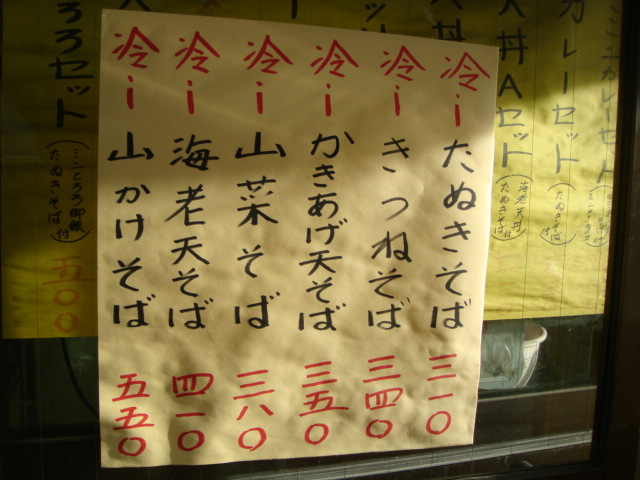 ミニカレーセット
カレーセット
(たぬきそば付)
丼Aセット
(海老天丼
たぬきそば付)
冷し たぬきそば 三一〇
冷し きつねそば 三四〇
冷し かきあげ天そば 三五〇
冷し 山菜そば 三八〇
冷し 海老天そば 四一〇
冷し 山かけそば 五五〇
ろろセット
(ミニとろろ御飯
たぬきそば付)
五〇〇